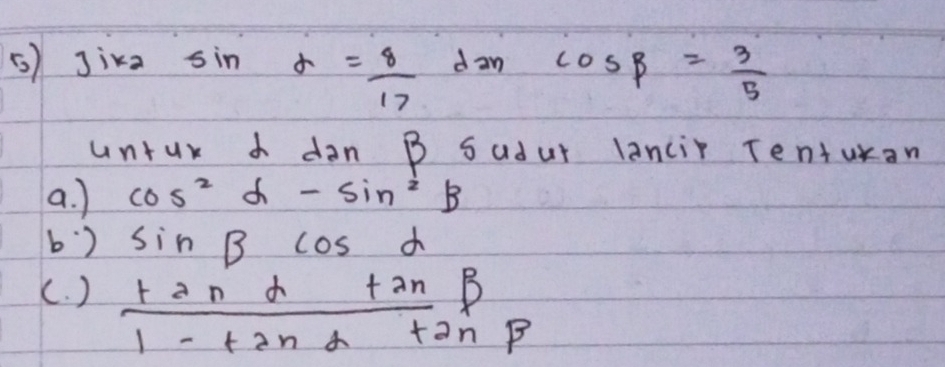 5) Jika sin α = 8/17 dan cos β = 3/5
untuk α dan β sudut lancip Tentukan
a.) cos² α - sin² β
b.) sin β cos α
c.) tan α tan β
1 - tan α tan β